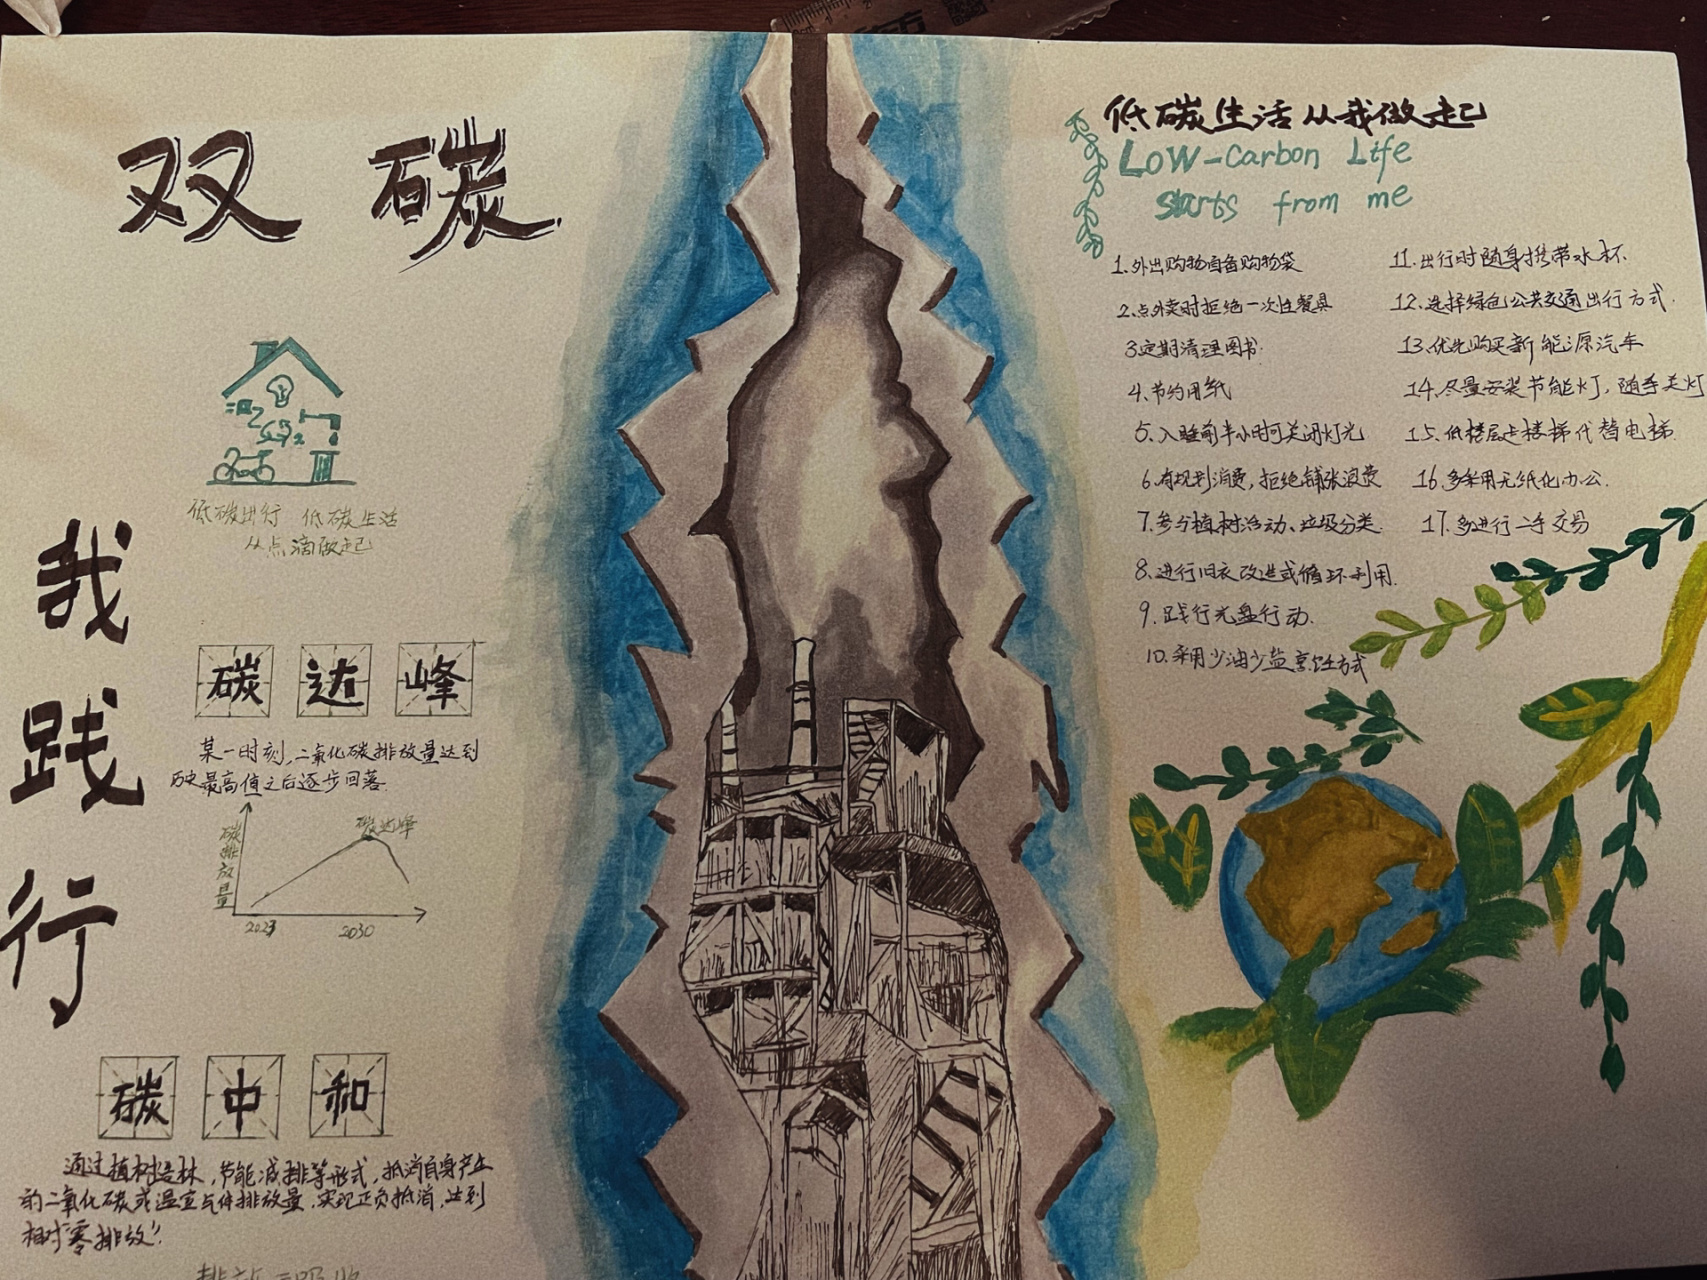 双碳
我践行
低碳出行 低碳生活
从点滴做起
碳达峰
某一时刻,二氧化碳排放量达到
历史最高值之后逐步回落.
碳排放量
碳达峰
2023
2030
碳中和
通过植树造林,节能减排等形式,抵消自身产生
的二氧化碳或温室气体排放量,实现正负抵消,达到
相对"零排放".
低碳生活从我做起
Low-Carbon Life
starts from me
1.外出购物自备购物袋
2.点外卖时拒绝一次性餐具
3.定期清理图书.
4.节约用纸
5.入睡前半小时可关闭灯光
6.有规划消费,拒绝铺张浪费
7.参与植树活动、垃圾分类.
8.进行旧衣改造或循环利用.
9.践行光盘行动.
10.采用少油少盐烹饪方式
11.出行时随身携带水杯.
12.选择绿色公共交通出行方式.
13.优先购买新能源汽车
14.尽量安装节能灯,随手关灯
15.低楼层走楼梯代替电梯.
16.多采用无纸化办公.
17.多进行二手交易